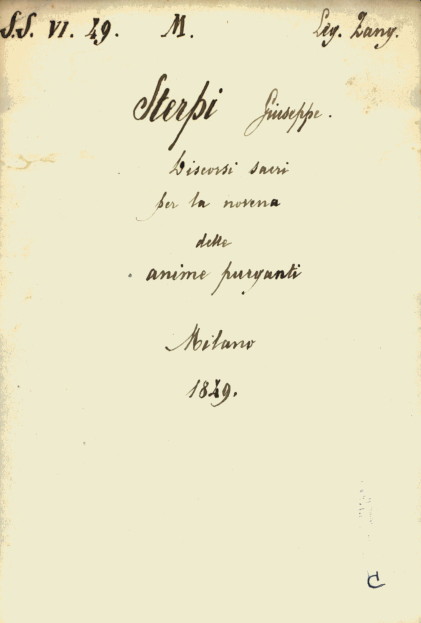 S.S. VI. 49. M. Leg. Zang.
Sterpi Giuseppe.
Discorsi sacri
per la novena
delle
anime purganti
Milano
1849.
C